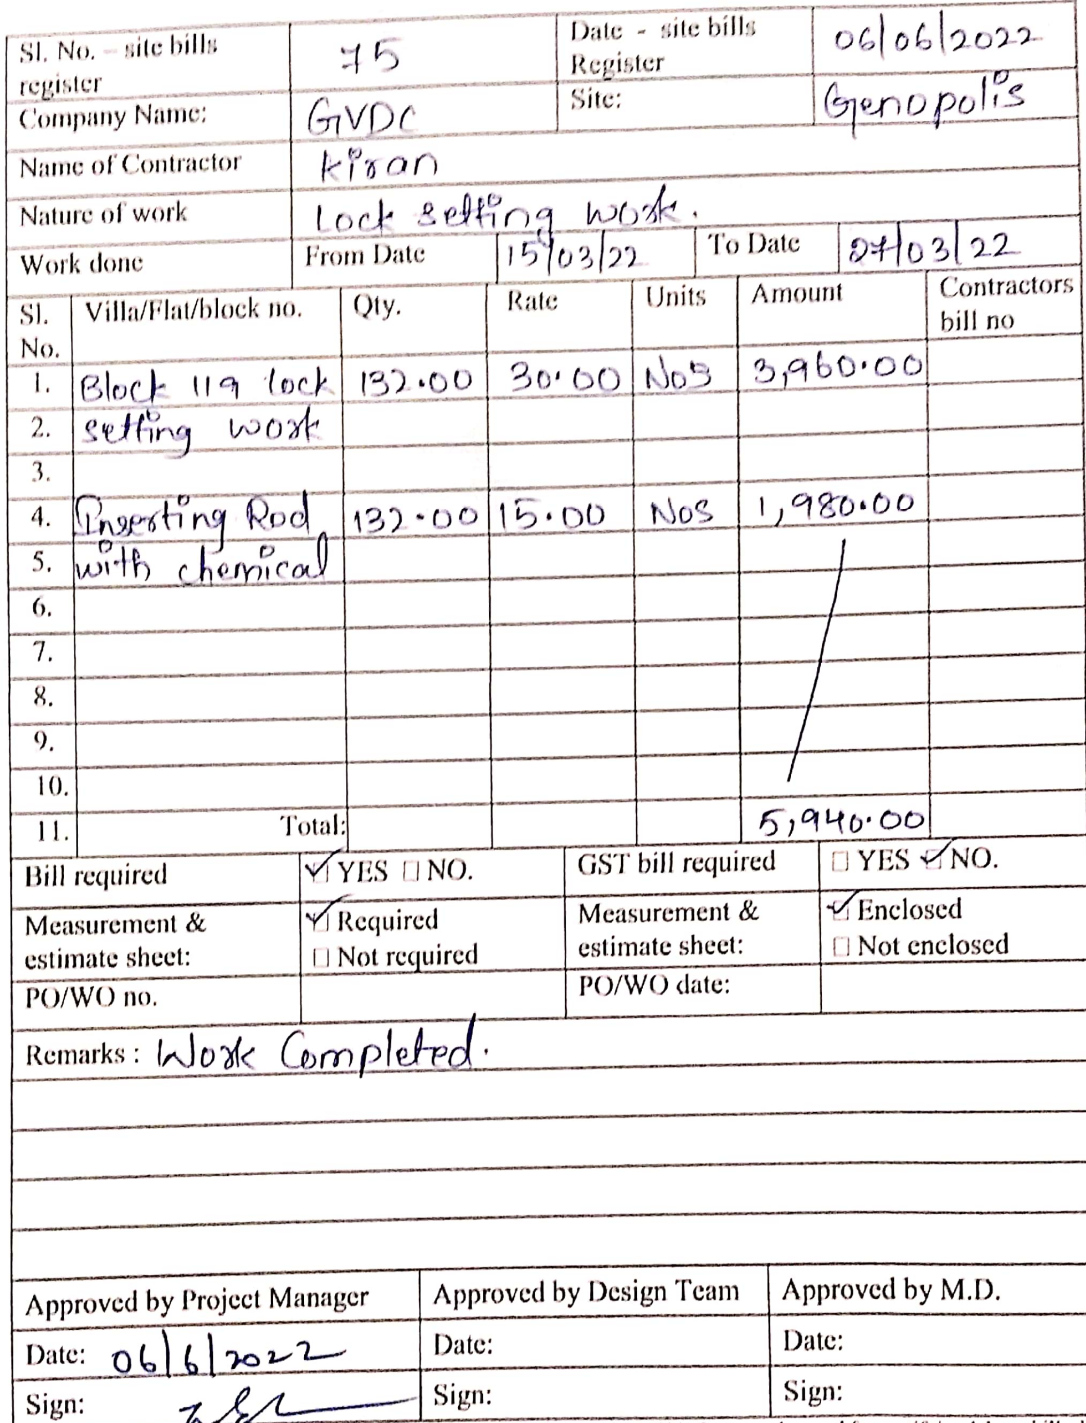 Sl. No. – site bills register 75 Date - site bills Register 06/06/2022
Company Name: GVDC Site: Genopolis
Name of Contractor Kiran
Nature of work Lock setting work.
Work done From Date 15/03/22 To Date 27/03/22
Sl. No. Villa/Flat/block no. Qty. Rate Units Amount Contractors bill no
1. Block 119 lock 132.00 30.00 Nos 3,960.00
2. setting work
3.
4. Inserting Rod 132.00 15.00 Nos 1,980.00
5. with chemical
6.
7.
8.
9.
10.
11. Total: 5,940.00
Bill required ☑ YES ☐ NO. GST bill required ☐ YES ☑ NO.
Measurement & estimate sheet: ☑ Required ☐ Not required Measurement & estimate sheet: ☑ Enclosed ☐ Not enclosed
PO/WO no. PO/WO date:
Remarks : Work Completed.
Approved by Project Manager Approved by Design Team Approved by M.D.
Date: 06/6/2022 Date: Date:
Sign: Sign: Sign: